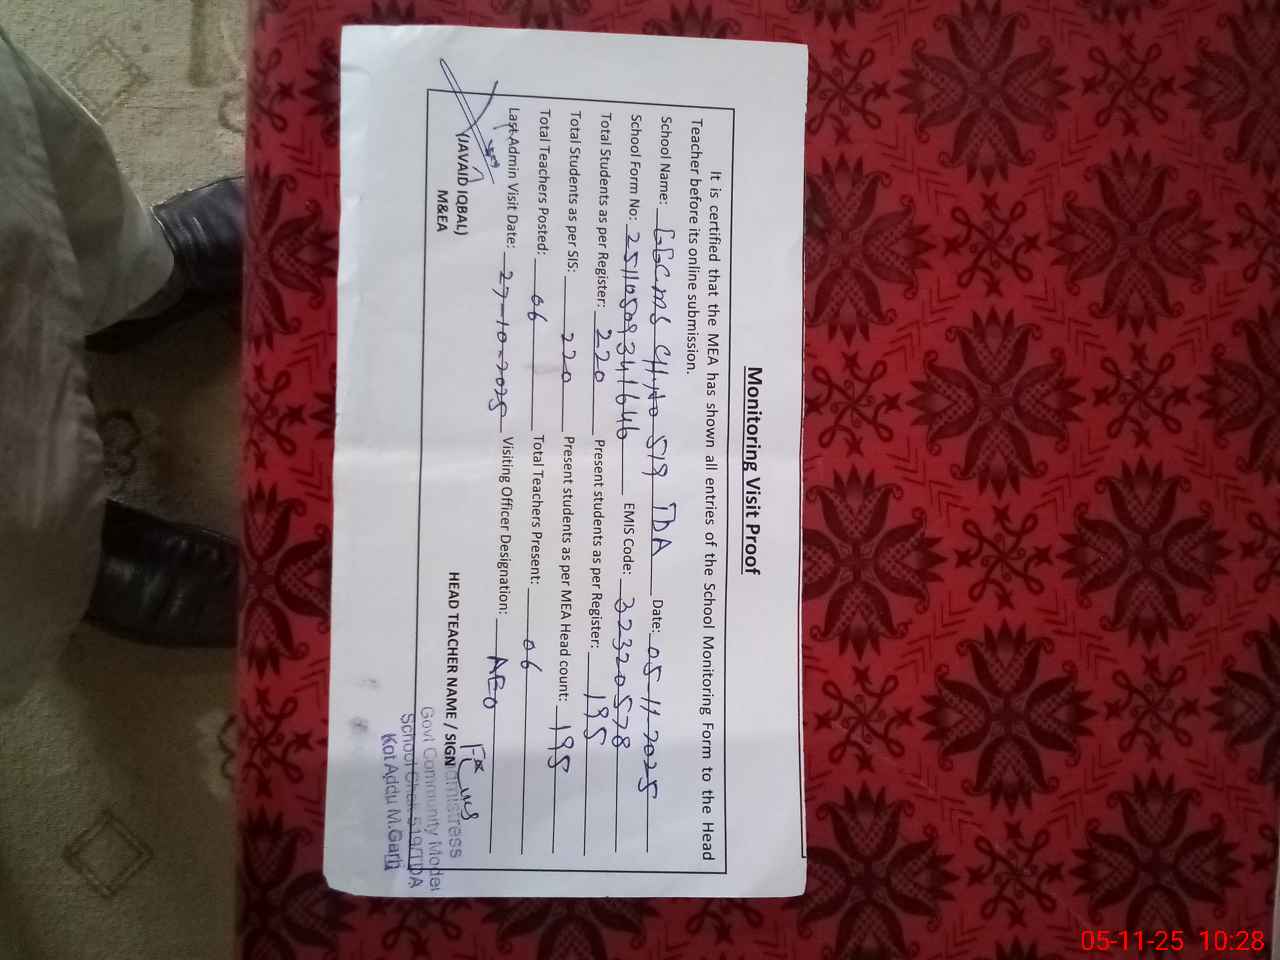 Monitoring Visit Proof
It is certified that the MEA has shown all entries of the School Monitoring Form to the Head
Teacher before its online submission.
School Name: GGCMS 519 TDA Date: 05-11-2025
School Form No: EMIS Code: 32320578
Total Students as per Register: 220 Present students as per Register: 195
Total Students as per SIS: 220 Present students as per MEA Head count: 195
Total Teachers Posted: 06 Total Teachers Present: 06
Last Admin Visit Date: 27-10-2025 Visiting Officer Designation: AEO
(JAVAID IQBAL)
M&EA
HEAD TEACHER NAME / SIGN
Govt Community Model
School Chak 519/TDA
Kot Addu M.Garh
05-11-25 10:28